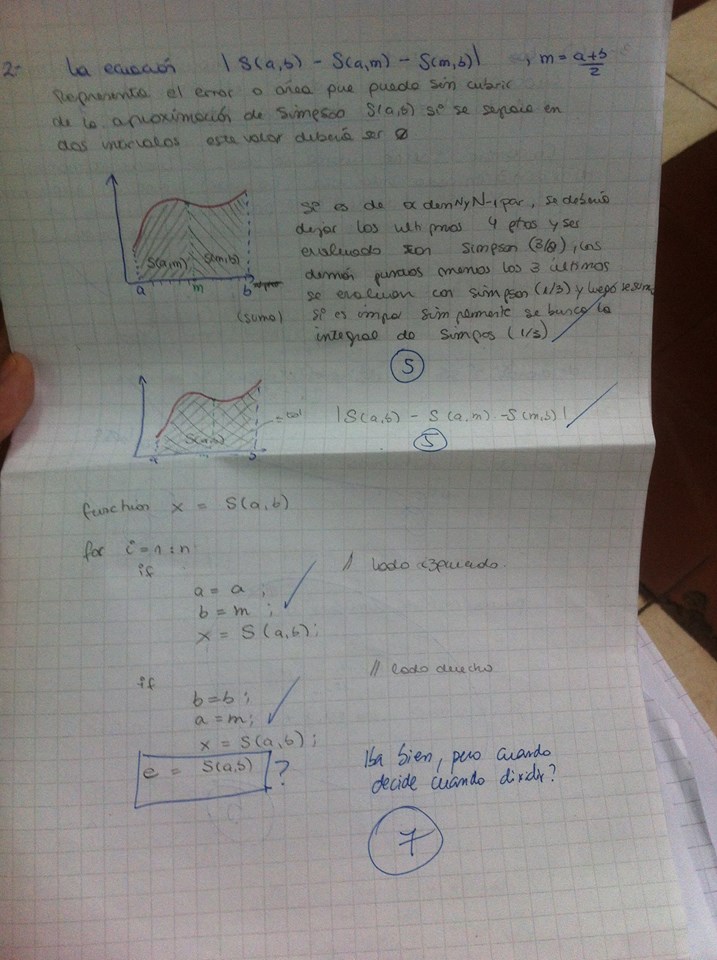 2.- La ecuación | S(a,b) - S(a,m) - S(m,b) | , m = a+b/2
Representa el error o área que puedo sin cubrir
de la aproximación de Simpson S(a,b) si se separa en
dos intervalos este valor debería ser 0
si es de N y N-1 par, se debería
dejar los ultimos 4 ptos y ser
evaluado con Simpson (3/8), los
demás puntos menos los 3 últimos
se evaluan con simpson (1/3) y luego se suma
si es impar simplemente se busca la
integral de Simpos (1/3)
S(a,m) S(m,b)
a m b
(suma)
5
S(a,b)
a b
= tol
| S(a,b) - S(a,m) - S(m,b) |
5
function x = S(a,b)
for i = 1:n
if // lado izquierdo.
a = a ;
b = m ;
x = S(a,b);
if // lado derecho
b = b ;
a = m ;
x = S(a,b) ;
e = S(a,b) ?
Iba bien, pero cuando
decide cuándo dividir?
7